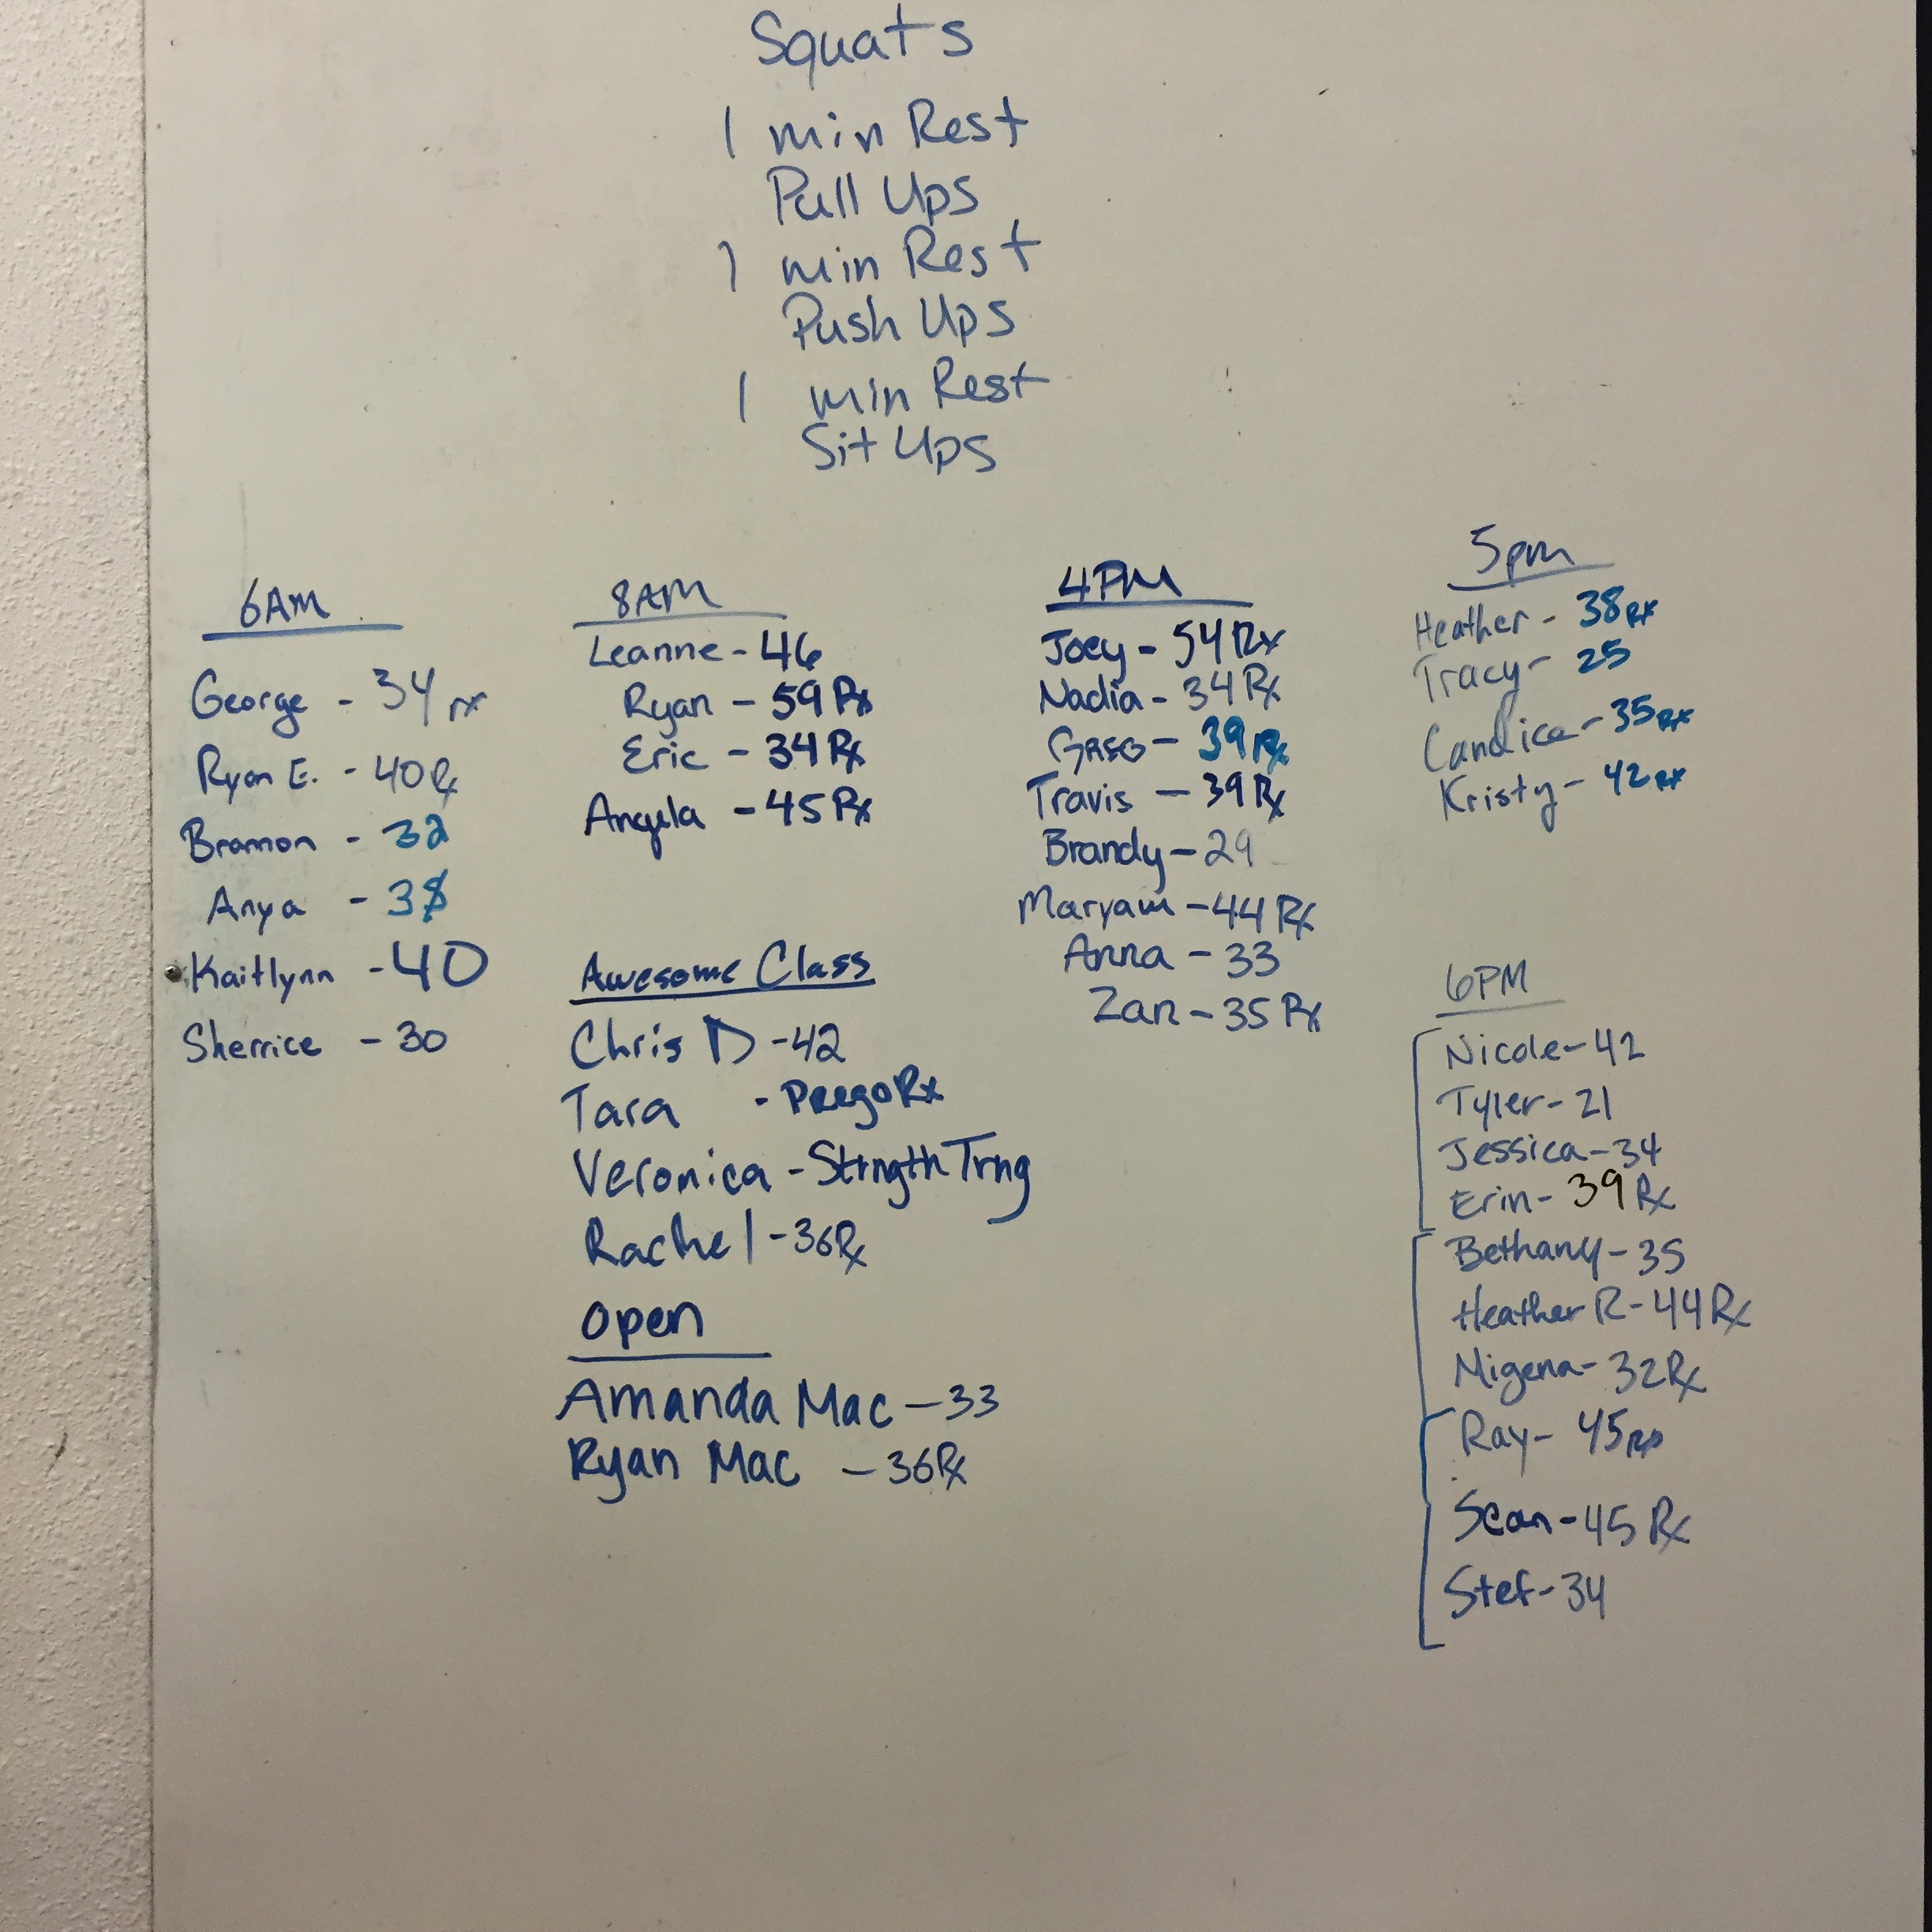 Squats
1 min Rest
Pull Ups
1 min Rest
Push Ups
1 min Rest
Sit Ups
6AM
George - 34 rx
Ryan E. - 40 Rx
Brannon - 32
Anya - 38
Kaitlynn - 40
Sherrice - 30
8AM
Leanne - 46
Ryan - 59 Rx
Eric - 34 Rx
Angela - 45 Rx
Awesome Class
Chris D - 42
Tara - Prego Rx
Veronica - Strngth Trng
Rachel - 36 Rx
Open
Amanda Mac - 33
Ryan Mac - 36 Rx
4PM
Joey - 54 Rx
Nadia - 34 Rx
GREG - 39 Rx
Travis - 39 Rx
Brandy - 29
Maryam - 44 Rx
Anna - 33
Zan - 35 Rx
5pm
Heather - 38 Rx
Tracy - 25
Candice - 35 Rx
Kristy - 42 Rx
6PM
Nicole - 42
Tyler - 21
Jessica - 34
Erin - 39 Rx
Bethany - 35
Heather R - 44 Rx
Migena - 32 Rx
Ray - 45 Rx
Sean - 45 Rx
Stef - 34